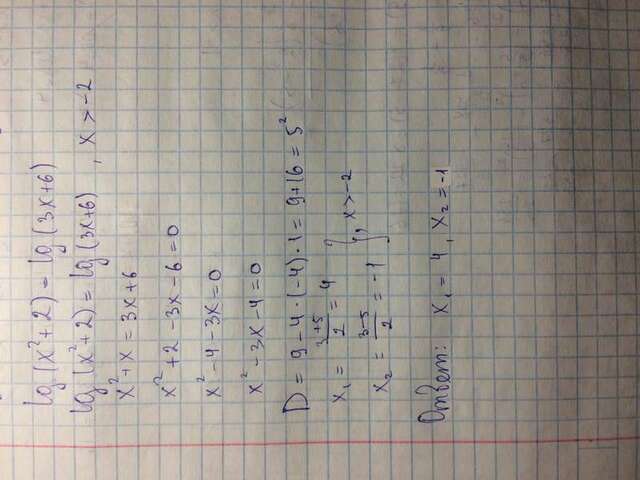 lg (x²+2) = lg (3x+6)
lg (x²+2) = lg (3x+6) , x > -2
x²+x = 3x+6
x²+2 -3x-6 =0
x²-4-3x=0
x²-3x-4=0
D = 9-4·(-4)·1= 9+16 = 5²
x₁ = 3+5/2 = 4
x₂ = 3-5/2 = -1 }, x>-2
Ответ: x₁ = 4, x₂=-1